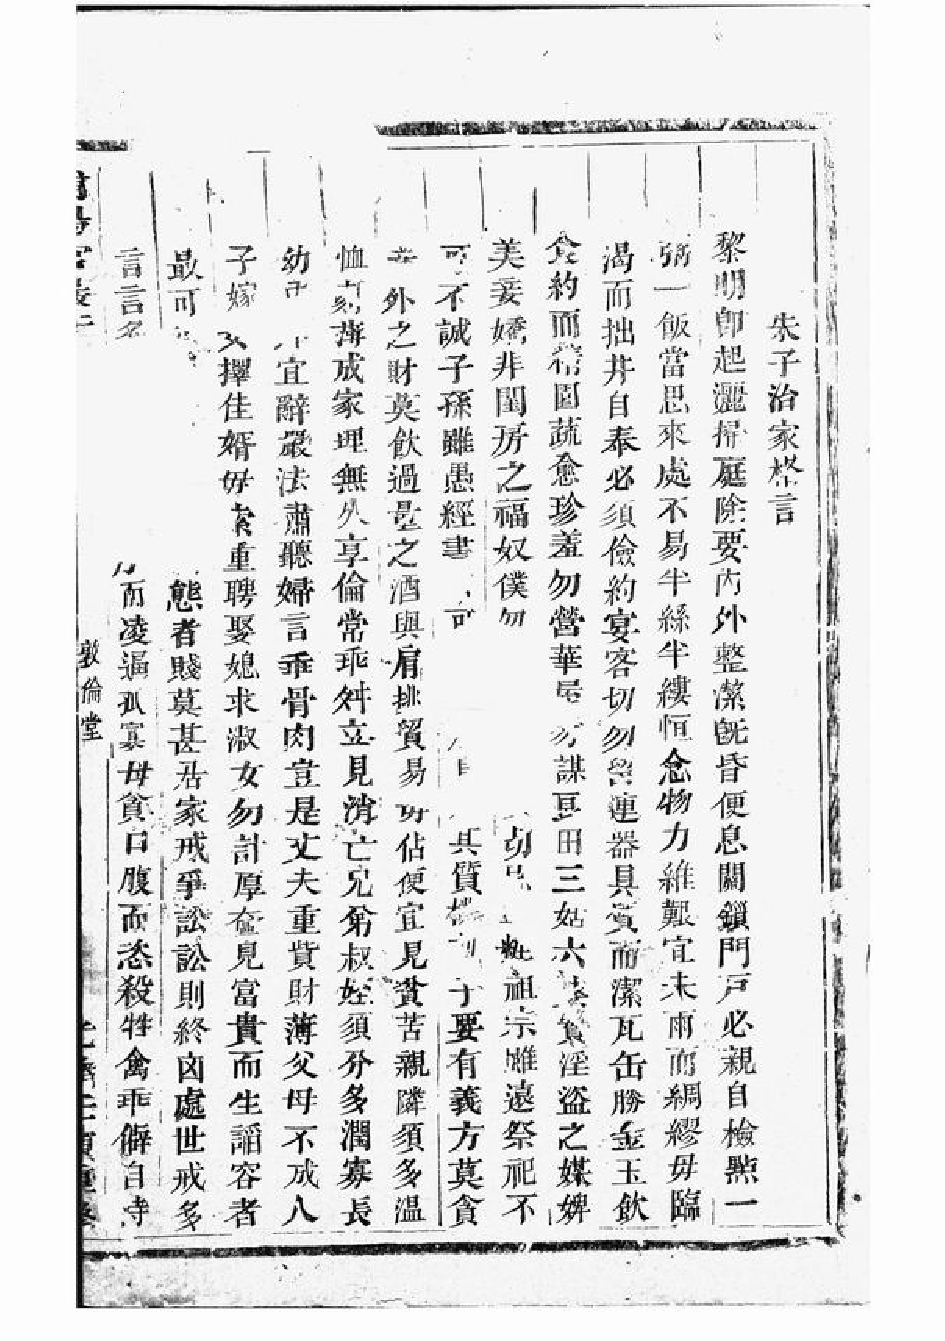 朱子治家格言
黎明卽起灑掃庭除要內外整潔旣昏便息關鎖門戸必親自檢㸃一
粥一飯當思來處不易半絲半縷恒念物力維艱宜未雨而綢繆毋臨
渴而拙井自奉必須儉約宴客切勿留連器具質而潔瓦缶勝金玉飮
食約而精園蔬愈珍羞勿營華居勿謀田三姑六淫盜之媒婢
美妾嬌非閨房之福奴僕勿祖宗雖遠祭祀不
可不誠子孫雖愚經書其質樸子要有義方莫貪
外之財莫飮過量之酒與肩挑貿易毋佔便宜見貧苦親隣須多溫
恤刻薄成家理無久享倫常乖舛立見消亡兄弟叔姪須分多潤寡長
幼宜辭嚴法肅聽婦言乖骨肉豈是丈夫重貲財薄父母不成人
子嫁女擇佳婿毋索重聘娶媳求淑女勿計厚奩見富貴而生謟容者
最可態者賤莫甚居家戒爭訟訟則終凶處世戒多
言言多而凌逼孤寡毋貪口腹而恣殺牲禽乖僻自
敦倫堂